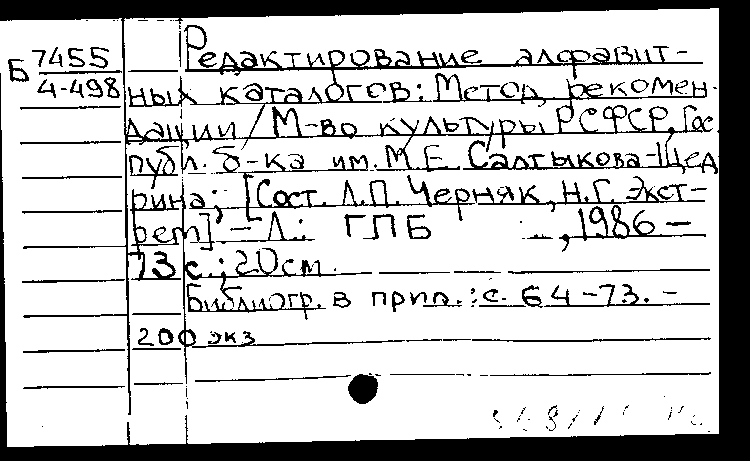 Б 7455
4-498
Редактирование алфавит-
ных каталогов: Метод. рекомен-
дации / М-во культуры РСФСР, Гос.
публ. б-ка им. М.Е. Салтыкова-Щед
рина; [Сост. Л.П. Черняк, Н.Г. Экст-
рем]. - Л.: ГПБ , 1986 -
73 с.; 20 см.
Библиогр. в прил.: с. 64-73. -
200 экз